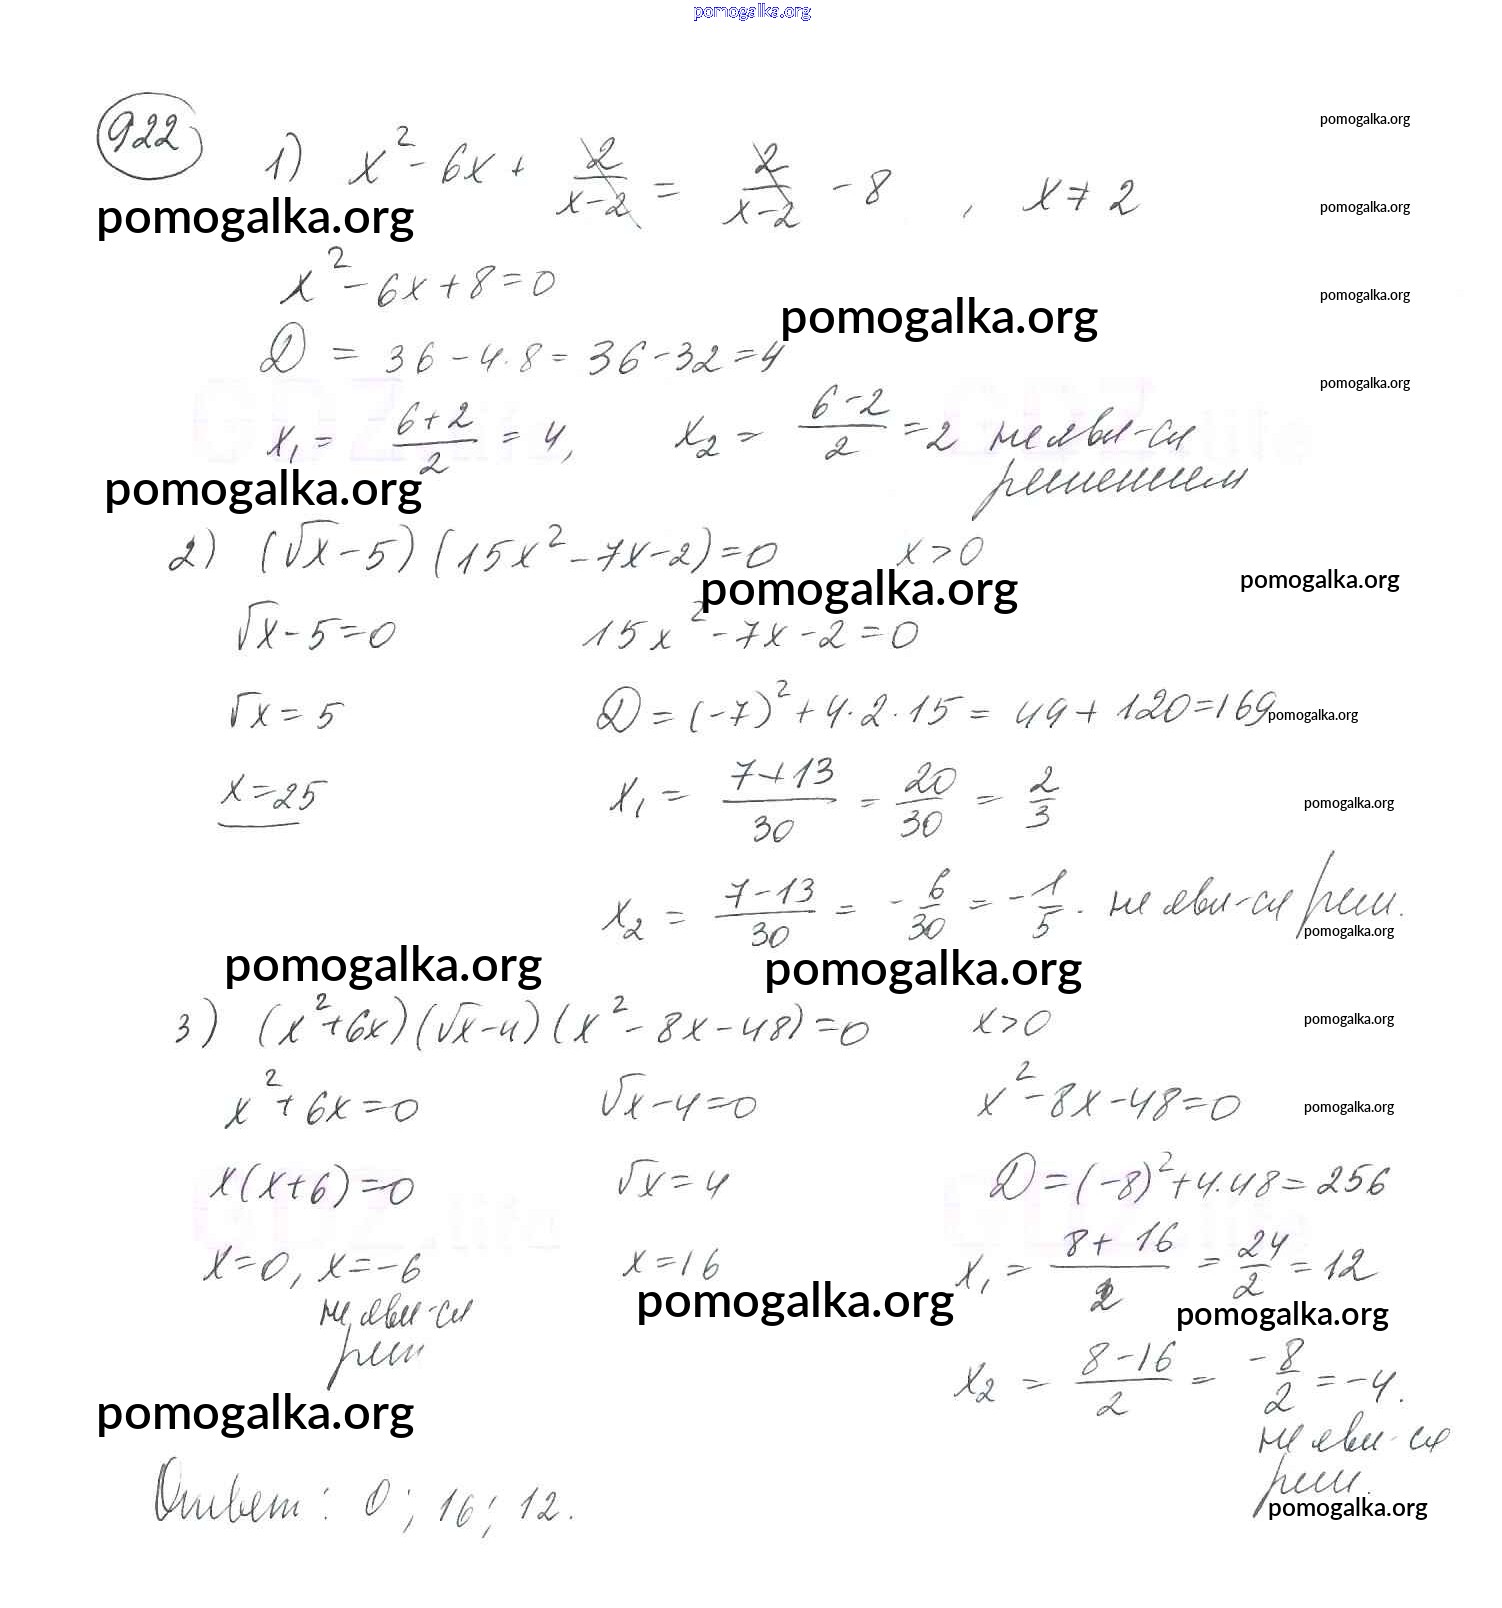 pomogalka.org
922
1) x² - 6x + 2/(x-2) = 2/(x-2) - 8 , x ≠ 2
pomogalka.org
pomogalka.org
pomogalka.org
x² - 6x + 8 = 0
pomogalka.org
pomogalka.org
D = 36 - 4·8 = 36 - 32 = 4
pomogalka.org
x₁ = (6+2)/2 = 4, x₂ = (6-2)/2 = 2 не явл-ся
решением
pomogalka.org
2) (√x - 5)(15x² - 7x - 2) = 0 x > 0
pomogalka.org
pomogalka.org
√x - 5 = 0 15x² - 7x - 2 = 0
√x = 5 D = (-7)² + 4·2·15 = 49 + 120 = 169
pomogalka.org
x = 25 x₁ = (7+13)/30 = 20/30 = 2/3
pomogalka.org
x₂ = (7-13)/30 = -6/30 = -1/5. не явл-ся реш.
pomogalka.org
pomogalka.org pomogalka.org
3) (x² + 6x)(√x - 4)(x² - 8x - 48) = 0 x > 0
pomogalka.org
x² + 6x = 0 √x - 4 = 0 x² - 8x - 48 = 0
pomogalka.org
x(x + 6) = 0 √x = 4 D = (-8)² + 4·48 = 256
x = 0, x = -6 x = 16 x₁ = (8+16)/2 = 24/2 = 12
не явл-ся
реш
pomogalka.org
pomogalka.org
x₂ = (8-16)/2 = -8/2 = -4.
не явл-ся
реш.
pomogalka.org
Ответ: 0; 16; 12.
pomogalka.org